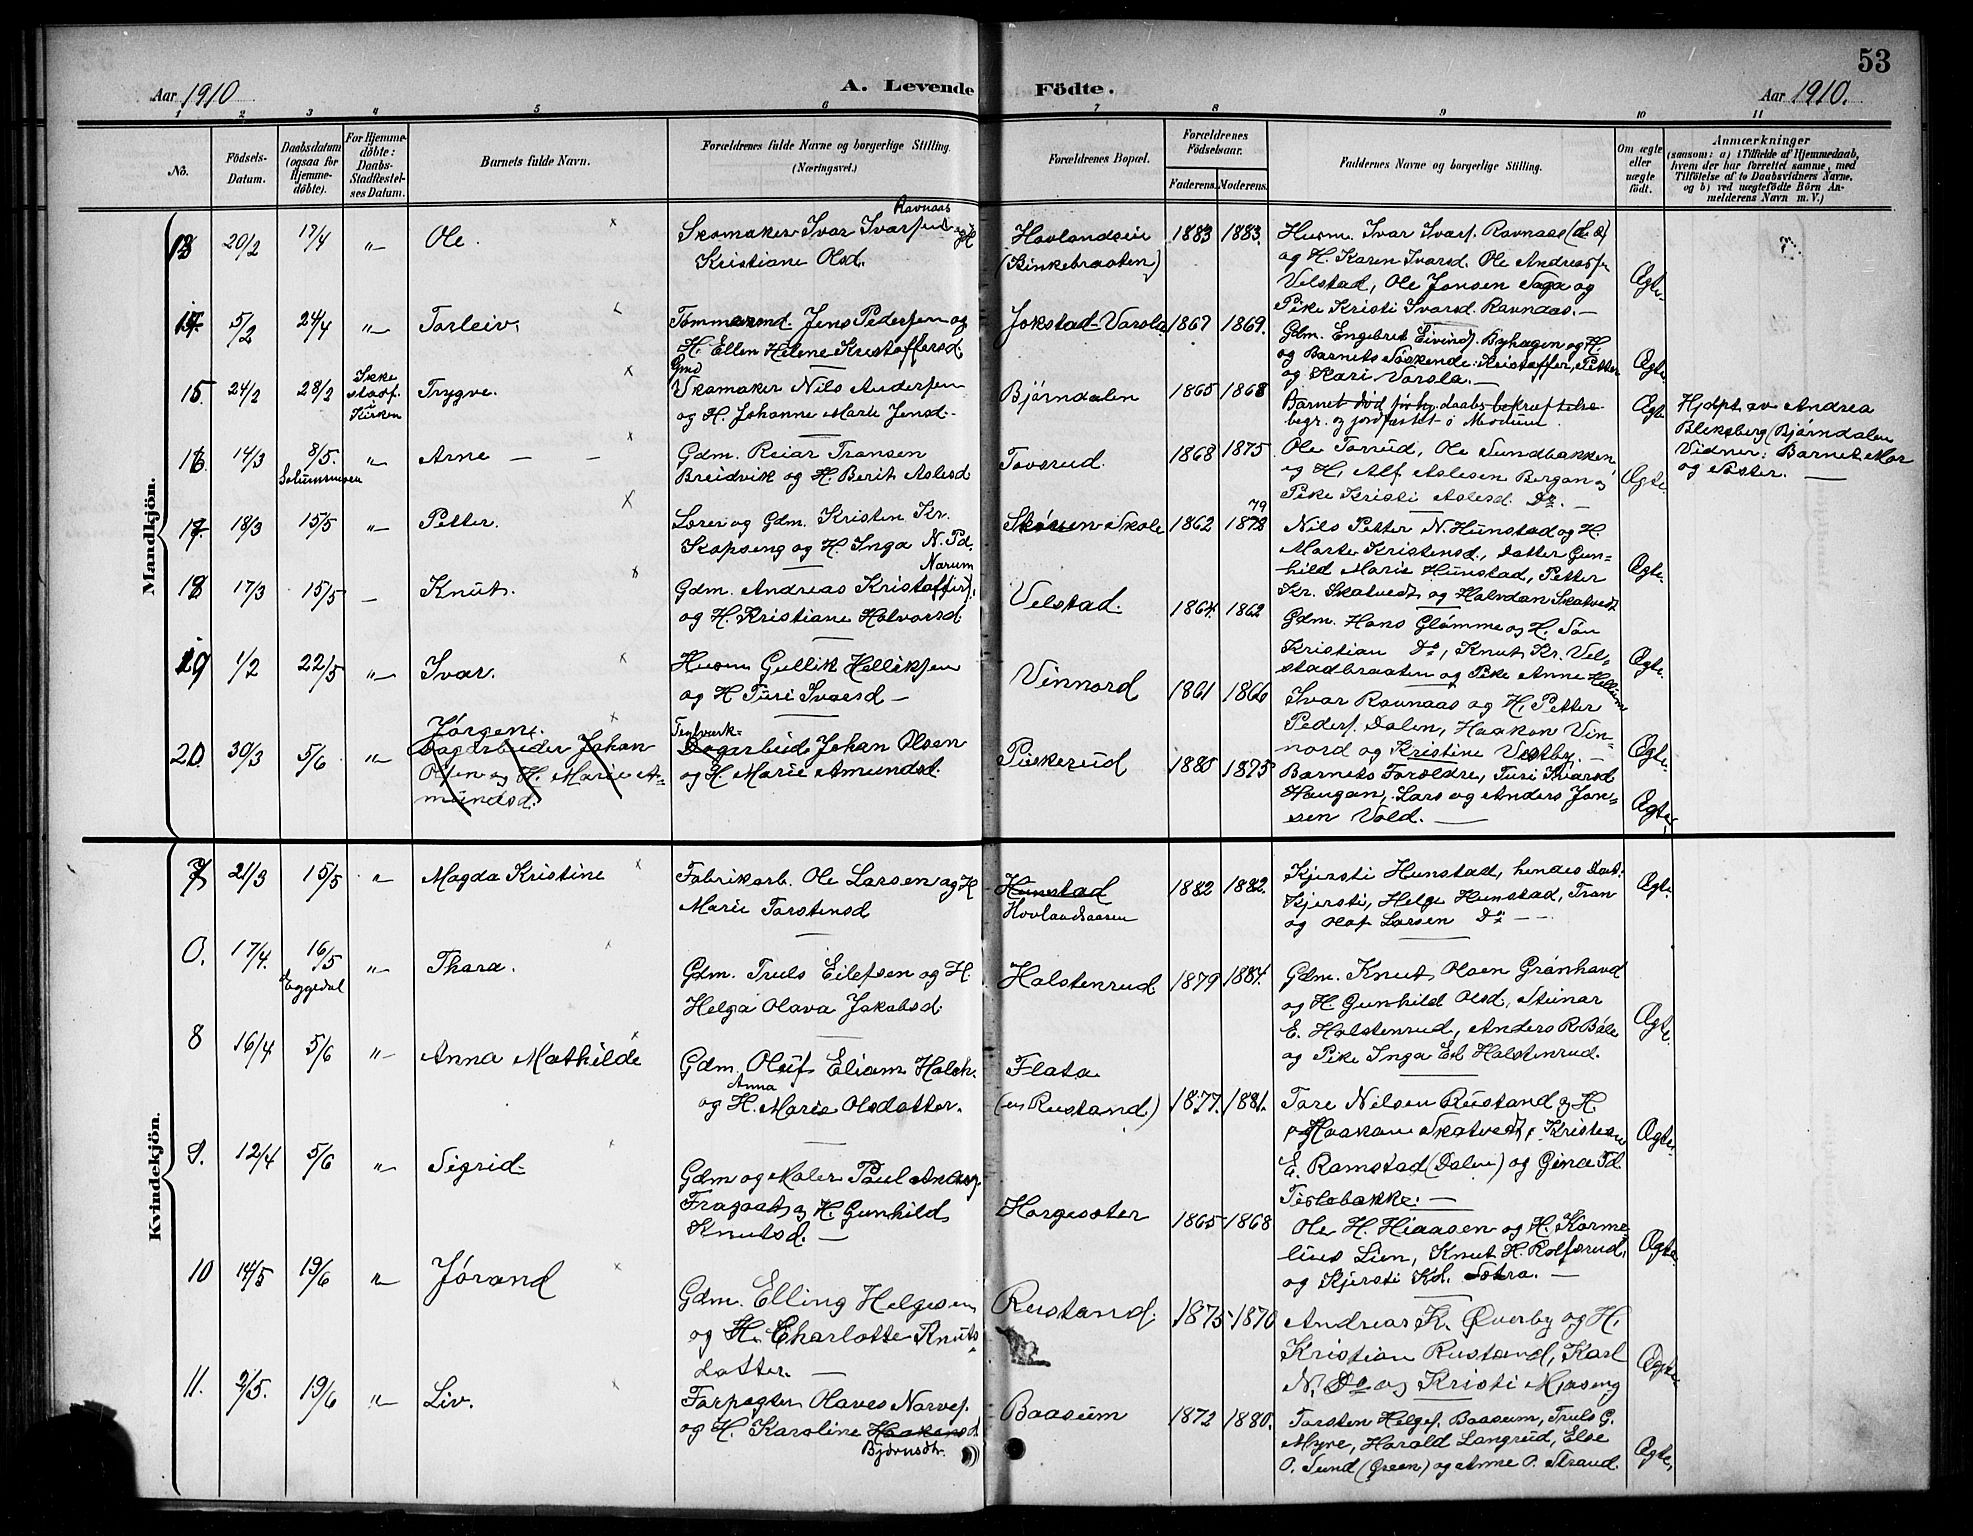 53
Aar 1910
A. Levende Födte.
Aar 1910.
1 2 3 4 5 6 7 8 9 10 11
No.
Födsels-Datum.
Daabsdatum (ogsaa for Hjemmedöbte).
For Hjemmedöbte: Daabs-Stadfestelses Datum.
Barnets fulde Navn.
Forældrenes fulde Navne og borgerlige Stilling.
(Næringsvei.)
Forældrenes Bopæl.
Forældrenes Födselsaar.
Faderens. Moderens.
Faddernes Navne og borgerlige Stilling.
Om ægte eller uægte født.
Anmærkninger
(saasom: a) i Tilfælde af Hjemmedaab, hvem der har forrettet samme, med Tilföielse af to Daabsvidners Navne, og b) ved uægtefödte Börn Anmelderens Navn m. V.)
Mandkjön.
13 20/2 17/4 " Ole.
Skomaker Ivar Ivarsen Ravnaas og H
Kristiane Olsd.
Hovlandseie
(Binkebraaten)
1883 1883.
Husm. Ivar Ivars. Ravnaas (d.e)
og H. Karen Ivarsd. Ole Andreas
Velstad, Ole Jonsen Saga og
Pike Kristi Ivarsd. Ravnaas. —
Ægte.
14 5/2 24/4 " Torleiv.
Tømmermd. Jens Pedersen og
H. Ellen Helene Kristoffersd.
Jokstad-Varsla
1867 1869.
Gdm. Engebret Eivinds. Byhagen og H.
og Barnets Søskende: Kristoffer, Petter
og Kari Varsla. —
Ægte.
15. 24/2 28/2
Ikke
stadf.
i
Kirken
Trygve.
Gmd
Skomaker Nils Andersen
og H. Johanne Marie Jensd.
Bjørndalen
1865 1868
Barnet död för daabs-bekræftelse
begr. og jordfæstet i Modum.
Ægte
Hjdpt. av Andrea
Bleksberg (Bjørndalen
Vidner: Barnet Mor
og Søster. —
16. 14/3 8/5. " Arne — —
Solumsmoen
Gdm. Reiar Transen
Breidvik og H. Berit Aslesd
Tovsrud.
1868 1875
Ole Tovrud, Ole Sundbakken,
og H, Alf Aslesen Bergan og
Pike Kristi Aslesd. Do. —
Ægte.
17. 18/3 15/5 " Petter.
Lærer og Gdm. Kristen Kr.
Skopseng og H. Inga N. Pd.
Narum
Skolen Skole
1862 1878
79
Nils Petter N. Hunstad og H.
Marte Kristensd., Datter Gunhild Marie Hunstad, Petter
Kr. Skatvedt og Halvdan Skatvedt
Ægte.
18 17/3 15/5 — Knut.
Gdm. Andreas Kristoffers.
og H. Kristiane Halvorsd.
Velstad.
1864. 1862
Gdm. Hans Glömme og H. Søn
Kristian Do, Knut Kr. Velstadbraaten og Pike Anne Hellum
Ægte.
19 1/2 22/5 " Ivar.
Husm Gullik Helliksen
og H Turi Ivarsd —
Vinnord
1861 1866
Ivar Ravnaas og H, Petter
Peders. Dalen, Haakon Vinnord og Kristine Vestby. —
Ægte.
20. 30/3 5/6 "
Jørgen.
Dagarbeider Johan
Olsen og H. Marie Amundsd.
Teglværk-
Dagarbeid. Johan Olsen
og H Marie Amundsd.
Piskerud
1885 1875
Barnets Forældre, Turi Ivarsd
Haugan, Lars og Anders Jonsen Vold. —
Ægte.
Kvindekjön.
7 21/3 15/5 " Magda Kristine
Fabrikarb. Ole Larsen og H
Marie Torstensd
Hunstad
Hovlandsaasen
1882 1882.
Kjersti Hunstad, hendes Dat.
Kjersti, Helge Hunstad, Tran
og Olaf Larsen Do — —
Ægte.
0. 17/4. 16/5 " Thora.
i Eggedal
Gdm. Truls Eilefsen og H.
Helga Olava Jakobsd.
Halstenrud.
1879 1884.
Gdm. Knut Olsen Grønhovd
og H. Gunhild Olsd, Steinar
E. Holstenrud, Anders R. Bøle
og Pike Inga E. Halstenrud.
Ægte.
8 16/4 5/6 " Anna Mathilde
Gdm. Oluf Eliam Halvh.
Anna
og H. Marie Olsdatter.
Flata
(u Rustand)
1877. 1881.
Tore Nilsen Rustand og H.
og Haakon Skatvedt, Kristian
E. Ramstad (Dalen) og Gina Td.
Tislebakke. —
Ægte.
9. 12/4 5/6 " Sigrid.
Gdm og Maler Paul Anders.
Fragaat og H. Gunhild
Knutsd. —
Horgeseter
1865 1868
Ole H. Hiaasen og H. Kornelius Lien, Knut H. Rolfsrud,
og Kjersti Kd. Sætra. —
Ægte.
10 14/5 19/6 " Jørand
Gdm. Elling Helgesen
og H. Charlotte Knutsdatter. —
Rustand.
1875 1870
Andreas K. Øverby og H.
Kristian Rustand, Karl
N. Do og Kristi Moseng
Ægte.
11. 2/5. 19/6 " Liv.
Forpagter Olaves Narves.
og H. Karoline Haakensd
Bjørnsdtr.
Baasum
1872 1880.
Torsten Helges. Baasum, Truls G.
Myre, Harald Langrud, Else
O. Sund (Green) og Anne O. Strand.
Ægte.